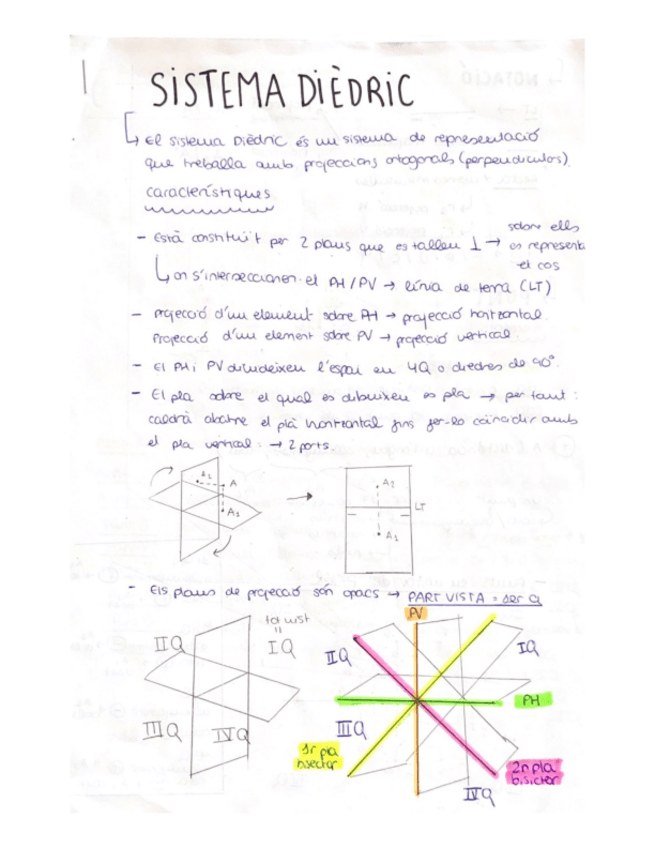 SISTEMA DIÈDRIC
↳ El sistema Dièdric és un sistema de representació
que treballa amb projeccions ortogonals (perpendiculars).
característiques
- Està constituït per 2 plans que es tallen ⊥ → sobre ells
es representa
el cos
↳ on s'interseccionen el PH/PV → línia de terra (LT)
- Projecció d'un element sobre PH → projecció horitzontal.
Projecció d'un element sobre PV → projecció vertical.
- El PH i PV divideixen l'espai en 4Q o diedres de 90°.
- El pla sobre el qual es dibuixen es pla → per tant:
caldrà abatre el pla horitzontal fins fer-lo coincidir amb
el pla vertical: → 2 parts.
A2
A
A1
→
A2
LT
A1
- Els plans de projecció són opacs → PART VISTA = 1er Q
tot vist
=
IIQ
IQ
IIIQ
IVQ
PV
IIQ
IQ
PH
IIIQ
1r pla
bisector
2n pla
bisictor
IVQ